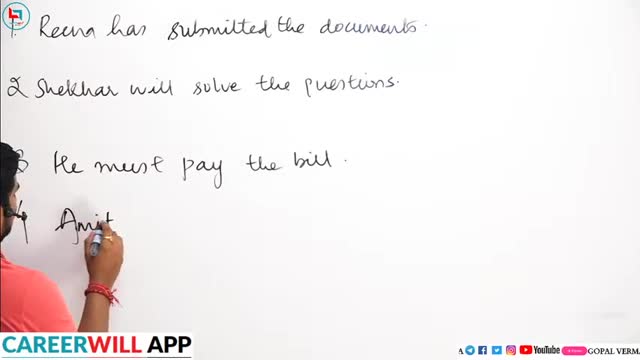 1. Reena has submitted the documents.
2 Shekhar will solve the questions.
3 He must pay the bill.
4 Amit
CAREERWILL APP
YouTube
GOPAL VERMA